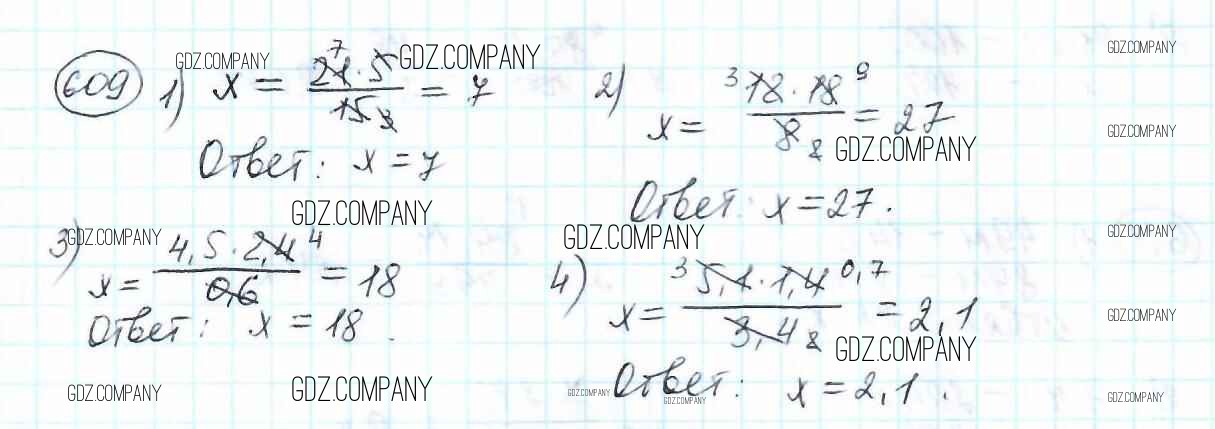 GDZ.COMPANY GDZ.COMPANY GDZ.COMPANY
609 1) x = 21 · 5 / 15 = 7
7
3
2) x = 12 · 18 / 8 = 27
3 9
2
GDZ.COMPANY
GDZ.COMPANY
Ответ: x = 7
Ответ: x = 27.
GDZ.COMPANY
GDZ.COMPANY GDZ.COMPANY GDZ.COMPANY
3) x = 4,5 · 2,4 / 0,6 = 18
4
4) x = 5,1 · 1,4 / 3,4 = 2,1
3 0,7
2
GDZ.COMPANY
Ответ: x = 18.
GDZ.COMPANY
Ответ: x = 2,1.
GDZ.COMPANY GDZ.COMPANY GDZ.COMPANY GDZ.COMPANY GDZ.COMPANY